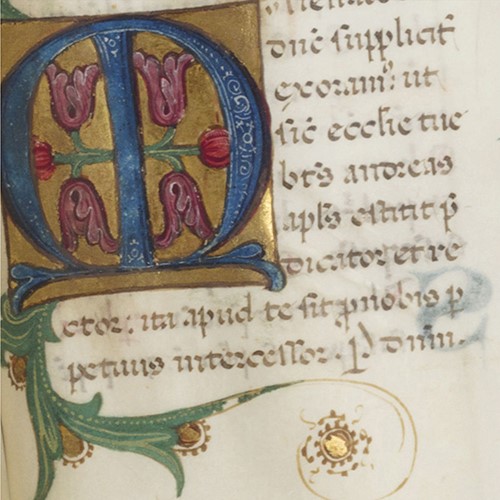 M
dn̄e supplicit̄
exoram⁹: ut
sic̄ eccl̄ie tue
bt̄s andreas
apl̄s extitit p̄
dicator et re
ctor: ita apud te sit ꝓ nobis ꝑ
petuus intercessor. P dn̄m.